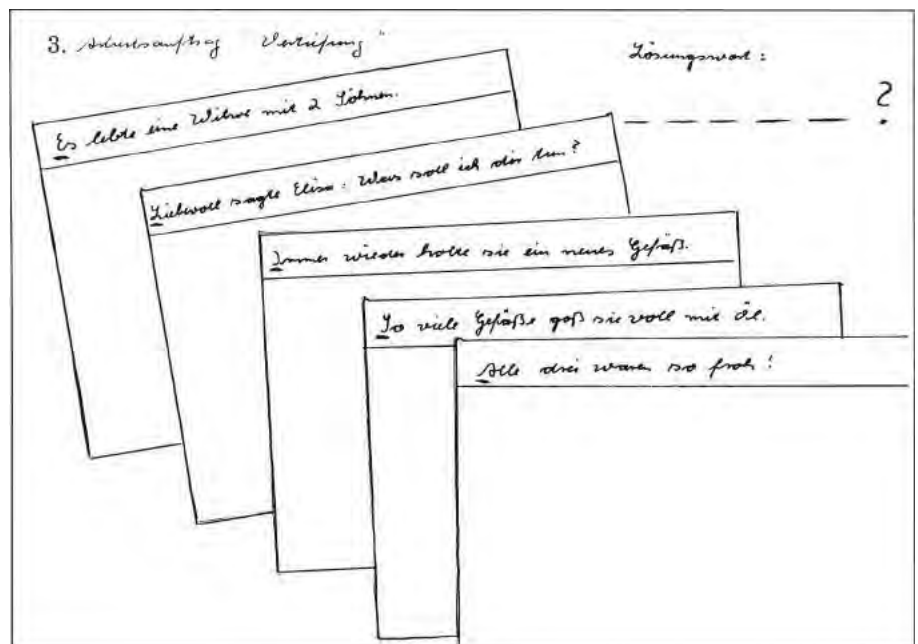 3. Arbeitsauftrag "Vertiefung"
Lösungswort:
_ _ _ _ _ ?
Es lebte eine Witwe mit 2 Söhnen.
Liebevoll sagte Elisa: Was soll ich dir tun?
Immer wieder holte sie ein neues Gefäß.
So viele Gefäße goß sie voll mit Öl.
Alle drei waren so froh!